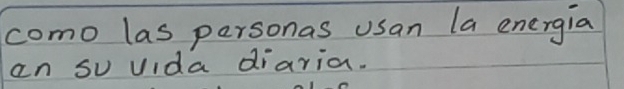 como las personas usan la energía
en su vida diaria.